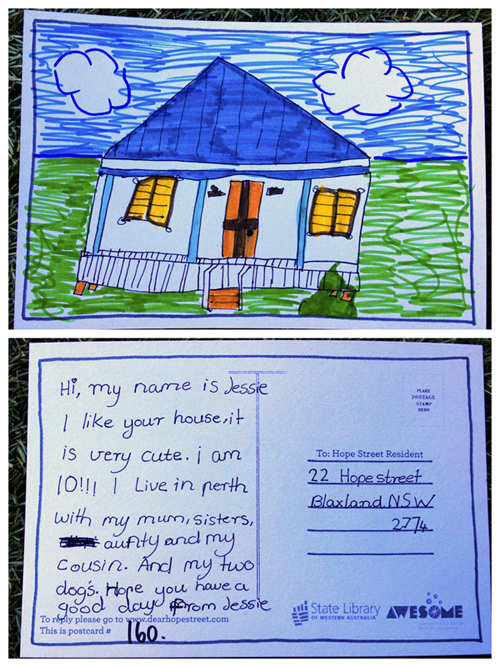 Hi, my name is Jessie
I like your house, it
is very cute. i am
10!!! I Live in perth
with my mum, sisters,
aunty and my
cousin. And my two
dog's. Hope you have a
good day From Jessie
To reply please go to www.dearhopestreet.com
This is postcard # 160.
PLACE
POSTAGE
STAMP
HERE
To: Hope Street Resident
22 Hope street
Blaxland NSW
2774
State Library
OF WESTERN AUSTRALIA
AWESOME